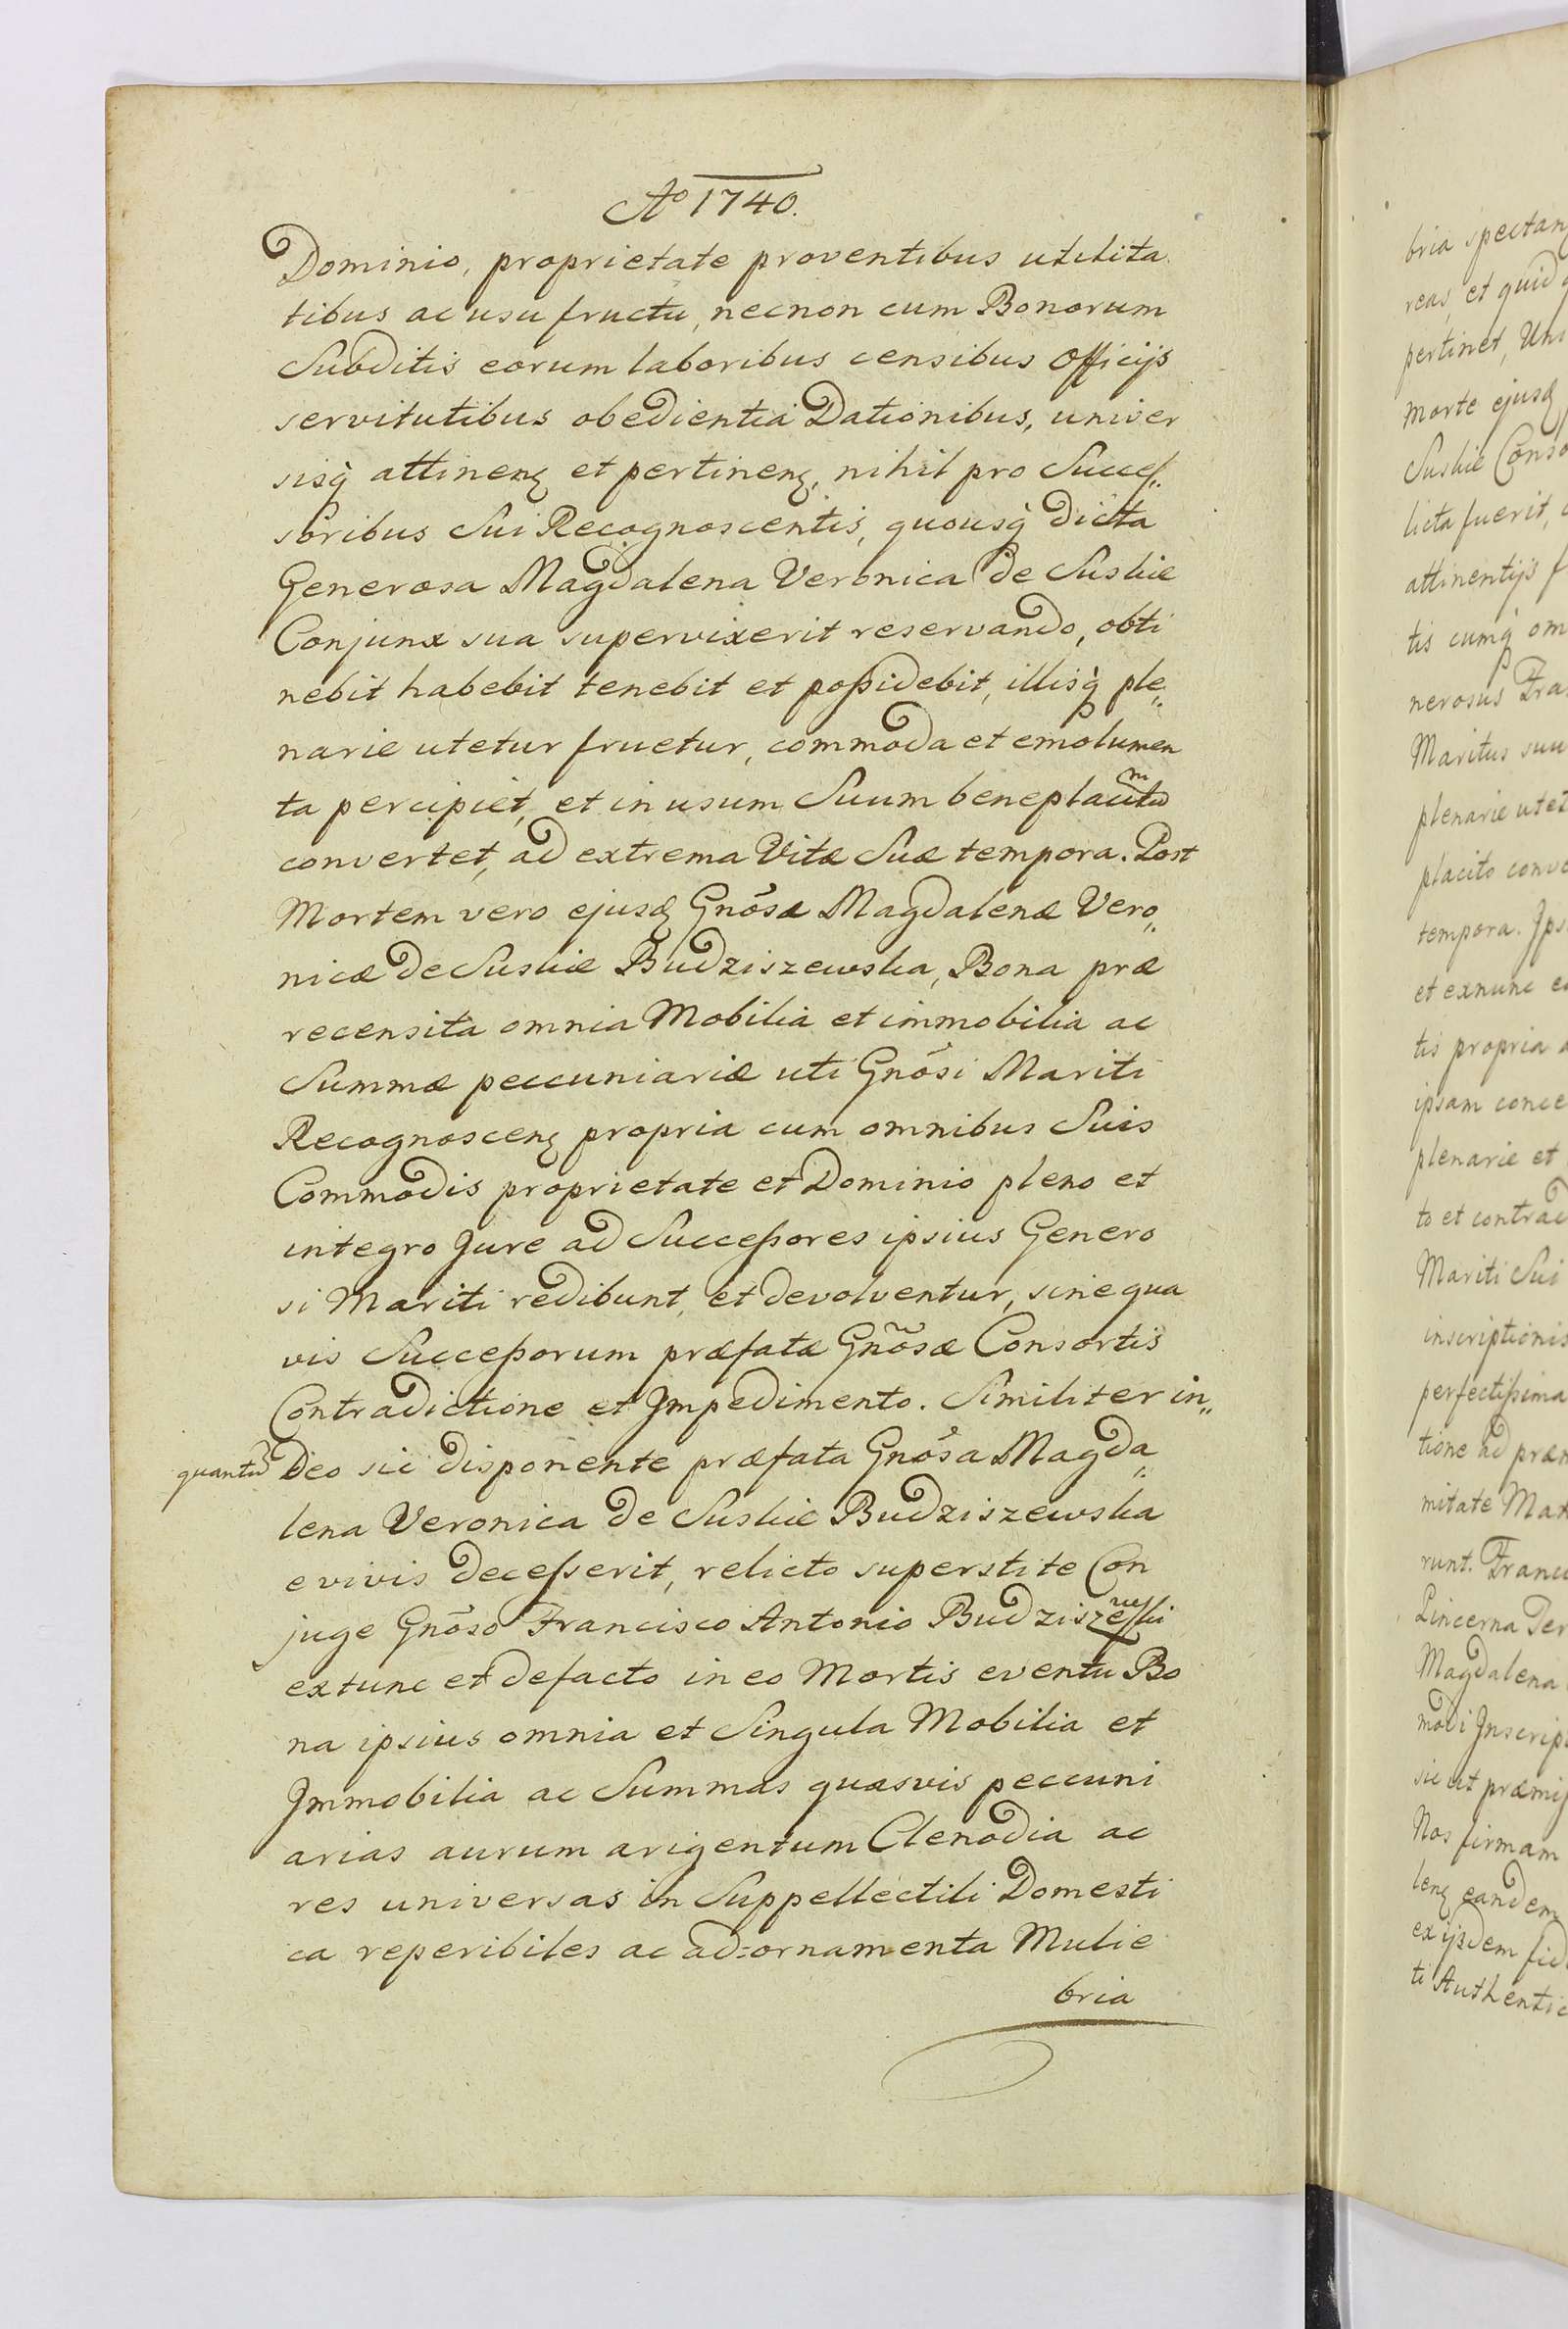 Aº 1740.
Dominio, proprietate proventibus utilita
tibus ac usu fructu, necnon cum Bonorum
Subditis eorum laboribus censibus Officijs
servitutibus obedientia Dationibus, univer
sisq̀ attinenꝫ et pertinenꝫ, nihil pro Succeſ„
soribus Sui Recognoscentis, quousq̀ dicta
Generosa Magdalena Veronica de Suskie
Conjunx sua supervixerit reservando, obti
nebit habebit tenebit et poßidebit, illisq̀ ple„
narie utetur fruetur, commoda et emolumen
ta percipiet, et in usum Suum beneplacitũ
convertet, ad extrema Vitæ Suæ tempora. Post
Mortem vero ejusdꝫ Gnõsæ Magdalenæ Vero„
nicæ de Suskie Budziszewska, Bona præ
recensita omnia Mobilia et immobilia ac
Summæ peccuniariæ uti Gnõsi Mariti
Recognoscenꝫ propria cum omnibus Suis
Commodis proprietate et Dominio pleno et
integro Jure ad Succeßores ipsius Genero
si Mariti redibunt, et devolventur, sine qua
vis Succeßorum præfatæ Gñosæ Consortis
Contradictione et Jmpedimento. Similiter in„
quantũ Deo sic disponente præfata Gnõsa Magda„
lena Veronica de Suskie Budziszewska
e vivis deceßerit, relicto superstite Con
juge Gnõso Francisco Antonio Budziszewski
extunc et defacto in eo Mortis eventu Bo
na ipsius omnia et Singula Mobilia et
Jmmobilia ac Summas quasvis peccuni
arias aurum arigentum Clenodia ac
res universas in Suppellectili Domesti
ca reperibiles ac ad=ornamenta Mulie
bria
bria spectan
reas, et quid
pertinet, Uni
morte ejusdꝫ
Suskie Conso
licta fuerit,
attinentijs
tis cumq̀ om
nerosus Fra
Maritus suu
plenarie utet
placito conve
tempora. Jps
et exnunc
tis propria
ipsam conce
plenarie et
to et contrad
Mariti Sui
inscriptionis
perfectißima
tione ad præm
mitate Mat
runt. Franci
Pincerna Ter
Magdalena
modi Jnscrip
sic ut præmiſ
Nos firmam
lenꝫ eandem
ex ijsdem fid
ti Authentic